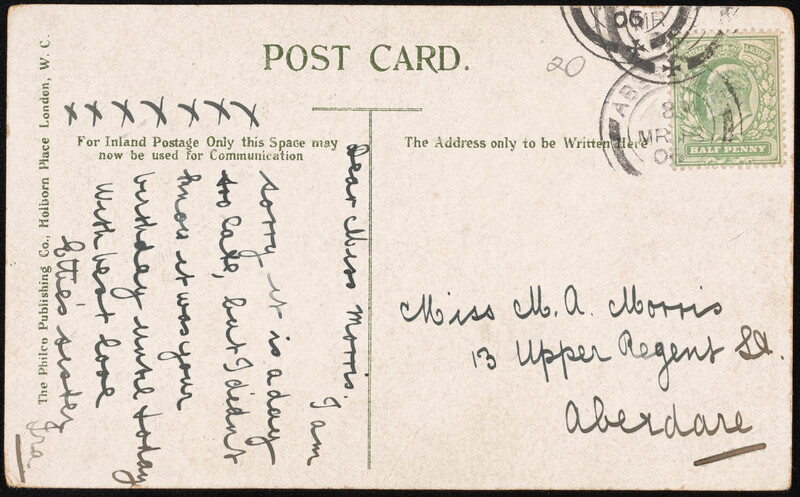 POST CARD.
The Philco Publishing Co., Holborn Place London, W. C.
For Inland Postage Only this Space may
now be used for Communication
The Address only to be Written Here
20
x x x x x x x
Dear Miss Morris. I am
sorry it is a day
too late, but I didn't
know it was your
birthday until today
With best love
Ettie's sister
Miss M. A. Morris
13 Upper Regent St.
Aberdare
HALF PENNY
05
MR
AB
8
MR